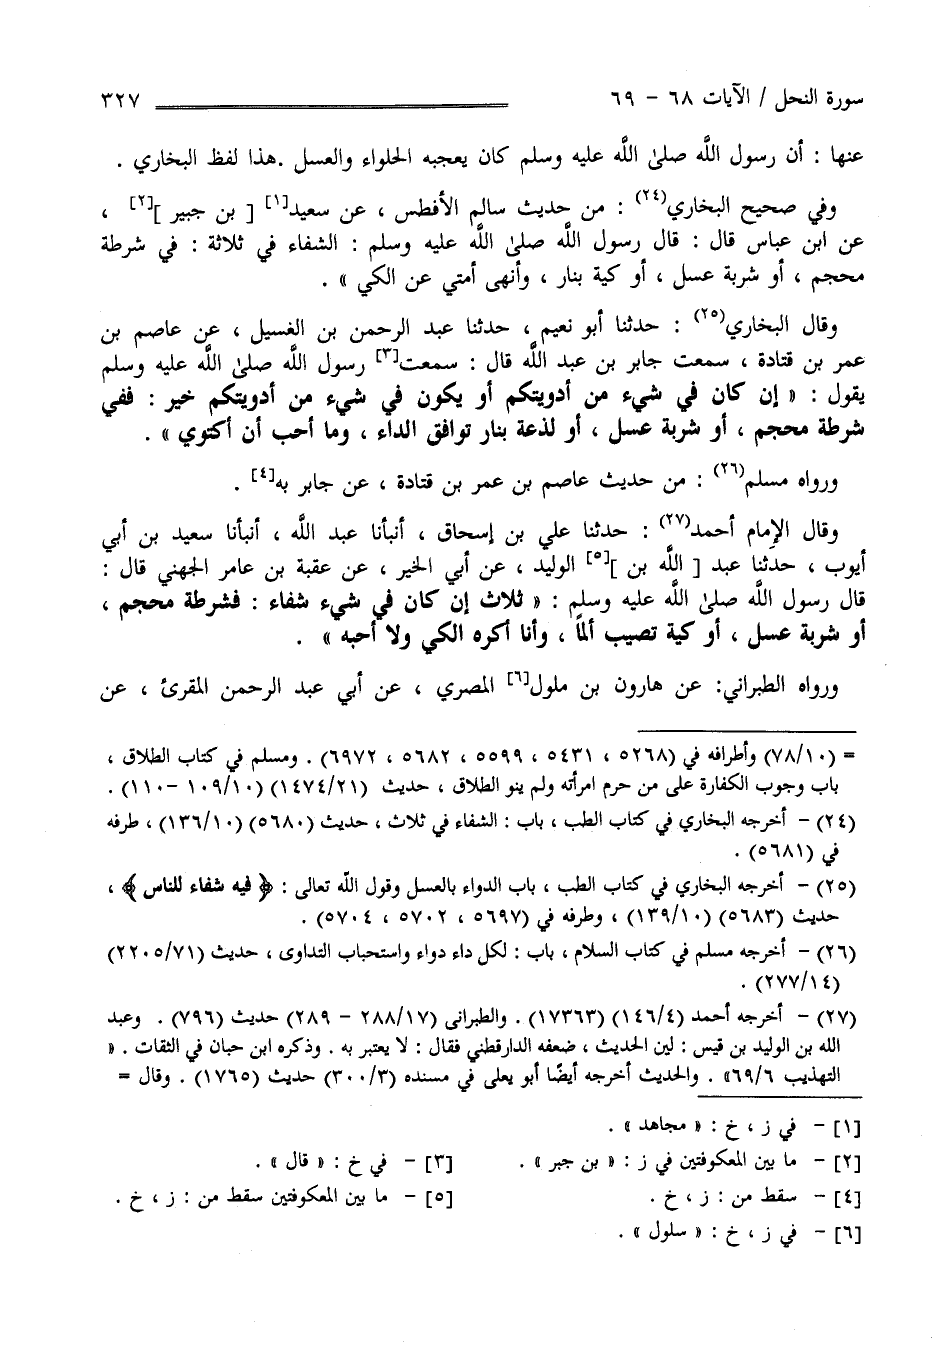 سورة النحل / الآيات ٦٨ - ٦٩ ٣٢٧
عنها : أن رسول اللَّه صلى اللَّه عليه وسلم كان يعجبه الحلواء والعسل .هذا لفظ البخاري .
وفي صحيح البخاري(٢٤) : من حديث سالم الأفطس ، عن سعيد[١] [ بن جبير ][٢] ،
عن ابن عباس قال : قال رسول اللَّه صلى اللَّه عليه وسلم : الشفاء في ثلاثة : في شرطة
محجم ، أو شربة عسل ، أو كية بنار ، وأنهى أمتي عن الكي » .
وقال البخاري(٢٥) : حدثنا أبو نعيم ، حدثنا عبد الرحمن بن الغسيل ، عن عاصم بن
عمر بن قتادة ، سمعت جابر بن عبد اللَّه قال : سمعت[٣] رسول اللَّه صلى اللَّه عليه وسلم
يقول : « إن كان في شيء من أدويتكم أو يكون في شيء من أدويتكم خير : ففي
شرطة محجم ، أو شربة عسل ، أو لذعة بنار توافق الداء ، وما أحب أن أكتوي » .
ورواه مسلم(٢٦) : من حديث عاصم بن عمر بن قتادة ، عن جابر به[٤] .
وقال الإمام أحمد(٢٧) : حدثنا علي بن إسحاق ، أنبأنا عبد اللَّه ، أنبأنا سعيد بن أبي
أيوب ، حدثنا عبد [ اللَّه بن ][٥] الوليد ، عن أبي الخير ، عن عقبة بن عامر الجهني قال :
قال رسول اللَّه صلى اللَّه عليه وسلم : « ثلاث إن كان في شيء شفاء : فشرطة محجم ،
أو شربة عسل ، أو كية تصيب ألمًا ، وأنا أكره الكي ولا أحبه » .
ورواه الطبراني: عن هارون بن ملول[٦] المصري ، عن أبي عبد الرحمن المقرئ ، عن
= (٧٨/١٠) وأطرافه في (٥٢٦٨ ، ٥٤٣١ ، ٥٥٩٩ ، ٥٦٨٢ ، ٦٩٧٢) . ومسلم في كتاب الطلاق ،
باب وجوب الكفارة على من حرم امرأته ولم ينو الطلاق ، حديث (١٤٧٤/٢١) (١٠٩/١٠ -١١٠) .
(٢٤) - أخرجه البخاري في كتاب الطب ، باب : الشفاء في ثلاث ، حديث (٥٦٨٠) (١٣٦/١٠) ، طرفه
في (٥٦٨١) .
(٢٥) - أخرجه البخاري في كتاب الطب ، باب الدواء بالعسل وقول اللَّه تعالى : ﴿ فيه شفاء للناس ﴾ ،
حديث (٥٦٨٣) (١٣٩/١٠) ، وطرفه في (٥٦٩٧ ، ٥٧٠٢ ، ٥٧٠٤) .
(٢٦) - أخرجه مسلم في كتاب السلام ، باب : لكل داء دواء واستحباب التداوى ، حديث (٢٢٠٥/٧١)
(٢٧٧/١٤) .
(٢٧) - أخرجه أحمد (١٤٦/٤) (١٧٣٦٣) . والطبرانى (٢٨٨/١٧ - ٢٨٩) حديث (٧٩٦) . وعبد
اللَّه بن الوليد بن قيس : لين الحديث ، ضعفه الدارقطني فقال : لا يعتبر به . وذكره ابن حبان في الثقات . «
التهذيب ٦٩/٦» . والحديث أخرجه أيضًا أبو يعلى في مسنده (٣٠٠/٣) حديث (١٧٦٥) . وقال =
[١] - في ز ، خ : « مجاهد » .
[٢] - ما بين المعكوفتين في ز : « بن جبر » . [٣] - في خ : « قال » .
[٤] - سقط من : ز ، خ . [٥] - ما بين المعكوفتين سقط من : ز ، خ .
[٦] - في ز ، خ : « سلول » .